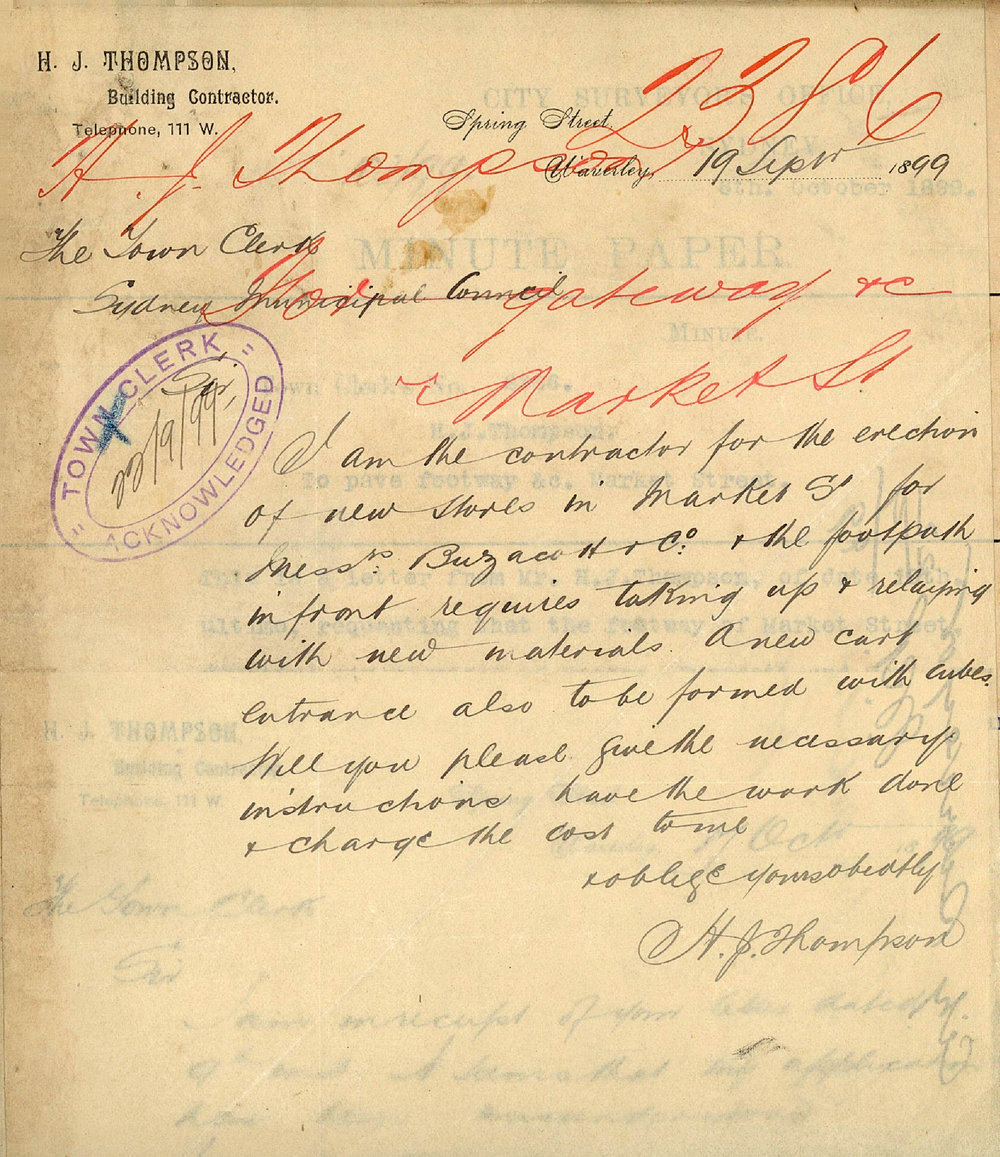 H. J. THOMPSON,
Building Contractor.
Telephone, 111 W.
2386
Spring Street,
Waverley, 19 Septr 1899
H. J. Thompson
The Town Clerk
Sydney Municipal Council
gateway &c
Market St
TOWN CLERK
22/9/99
ACKNOWLEDGED
Sir,
I am the contractor for the erection
of new stores in Market St for
Messrs Buzacott & Co. & the footpath
infront requires taking up & relaying
with new materials. A new cart
entrance also to be formed with cubes.
Will you please give the necessary
instructions have the work done
& charge the cost to me
& oblige yours obedtly
H. J. Thompson
CITY SURVEYOR'S OFFICE,
SYDNEY
6th. October 1899.
MINUTE PAPER.
MINUTE.
Town Clerk's No.
H.J.Thompson.
To pave footway &c. Market Street.
This is a letter from Mr. H.J.Thompson, of date 19th.
ultimo, requesting that the footway of Market Street
H. J. THOMPSON,
Building Contractor
Telephone, 111 W.
Oct
The Town Clerk
Sir
I am in receipt of your letter dated